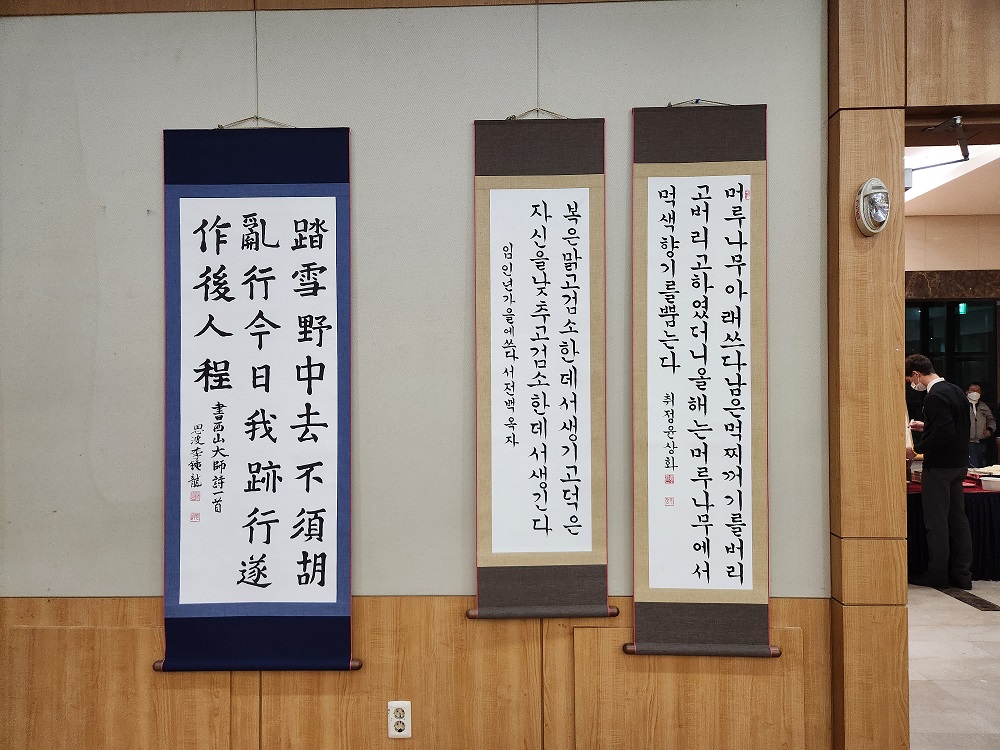 踏雪野中去不須胡
亂行今日我跡行遂
作後人程
書西山大師詩一首
복은맑고검소한데서생기고덕은
자신을낮추고검소한데서생긴다
임인년가을에쓰다 서전백옥자
머루나무아래쓰다남은먹찌꺼기를버리
고버리고하였더니올해는머루나무에서
먹색향기를뿜는다
취정윤상화